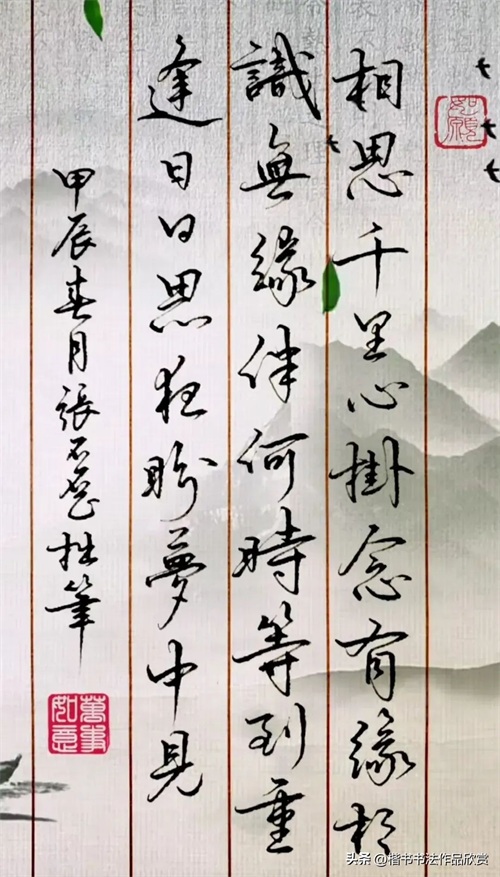 相思千里心掛念有緣相
識無緣伴何時等到重
逢日日思狂盼夢中見
甲辰春月張不忍拙筆
如願
萬事如意
头条 @楷书书法作品欣赏